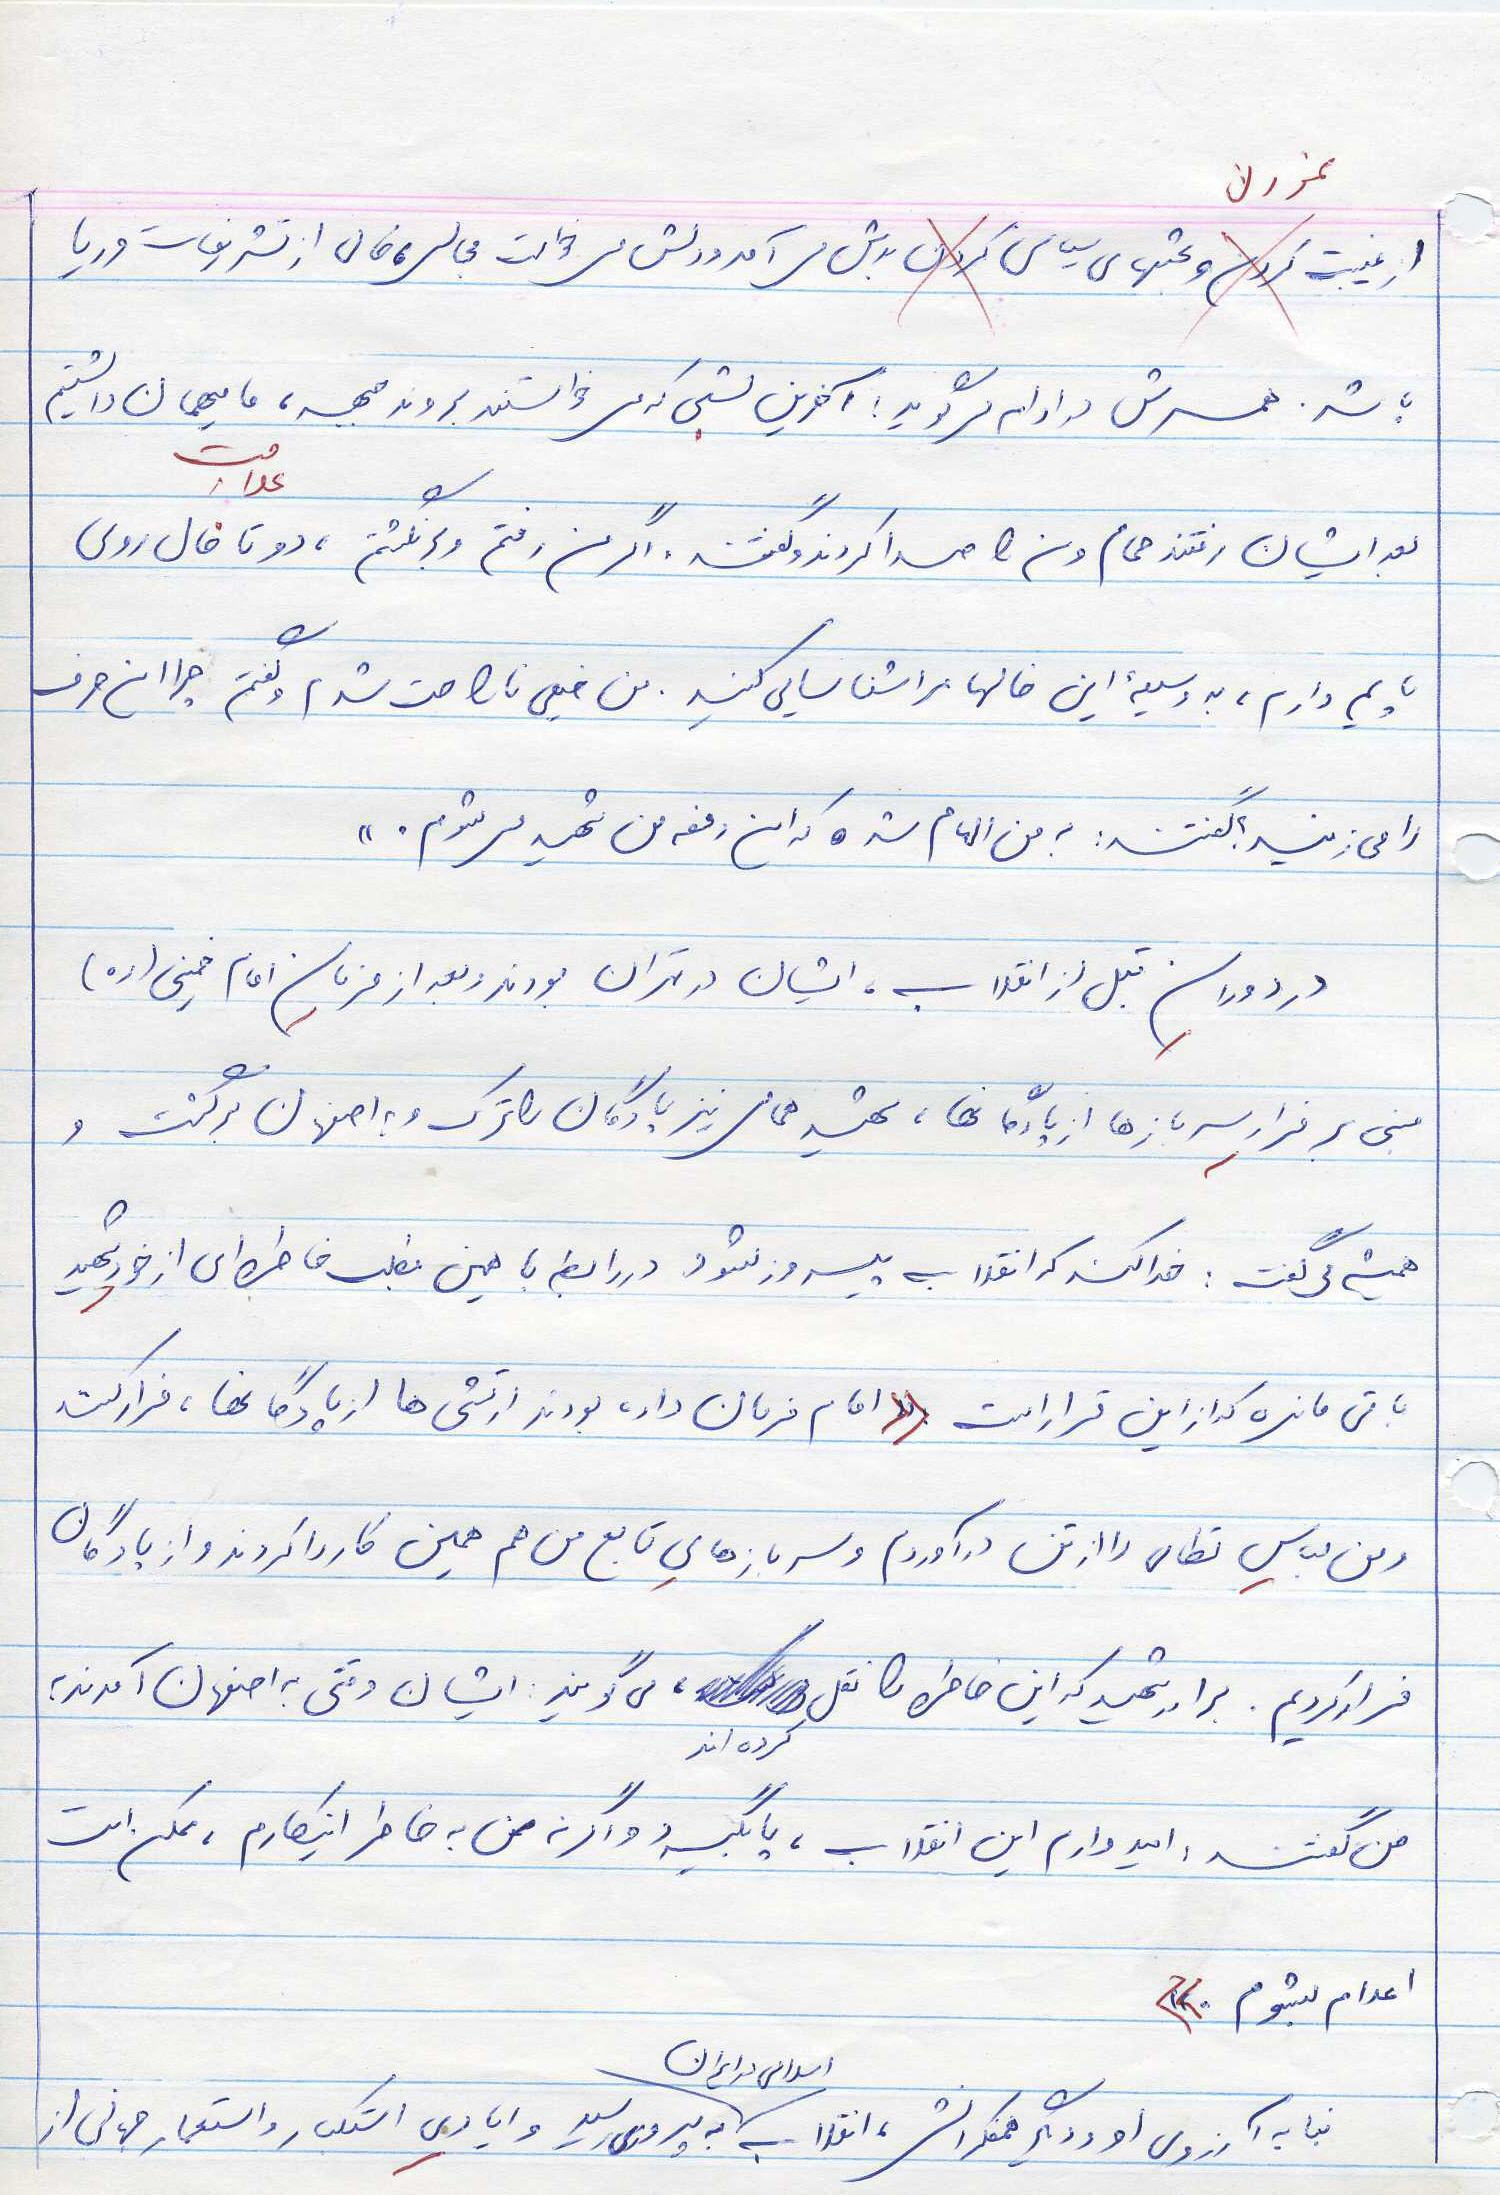 نمودن
از غیبت کردن و بحثهای سیاسی کردن بدش می آمد و دلش می خواست مجالس، خالی از تشریفات و ریا
باشد. همسرش در ادامه می گوید: آخرین شبی که می خواستند بروند جبهه، ما میهمان داشتیم
علامت
بعد ایشان رفتند حمام و من را صدا کردند و گفتند: اگر من رفتم و برنگشتم، دو تا خال روی
پایم دارم، به وسیلهٔ این خالها مرا شناسایی کنید. من خیلی ناراحت شدم و گفتم چرا این حرف
را می زنید؟ گفتند: به من الهام شده که این دفعه من شهید می شوم. »
در دورانِ قبل از انقلاب، ایشان در تهران بودند و بعد از فرمانِ امام خمینی (ره)
مبنی بر فرارِ سربازها از پادگانها، شهید همامی نیز پادگان را ترک و به اصفهان برگشت و
همیشه می گفت: خدا کند که انقلاب پیروز شود در رابطه با همین مطلب خاطره ای از خودِ شهید
باقی مانده که از این قرار است «امام فرمان داده بودند ارتشی ها از پادگانها، فرار کنند
و من لباسِ نظامی را از تن درآوردم و سربازهایِ تابع من هم همین کار را کردند و از پادگان
فرار کردیم. برادر شهید که این خاطره را نقل، می گویند: ایشان وقتی به اصفهان آمدند به
کرده اند
من گفتند: امید دارم این انقلاب، پا بگیرد و اگر نه من به خاطر اینکارم، ممکن است
اعدام بشوم. »
اسلامی در ایران
بنا به آرزوی او و دیگر همفکرانش، انقلاب به پیروزی رسید و ایادیِ استکبار و استعمار جهانی از